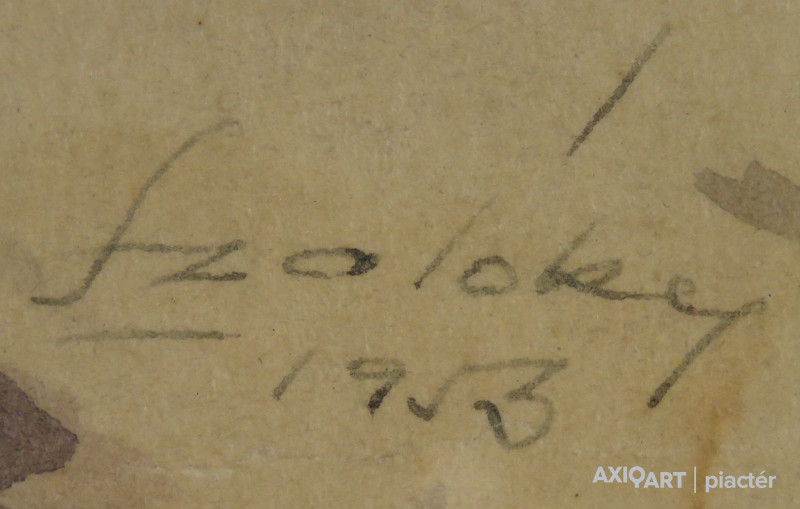 Szolókey
1953
AXIOART | piactér